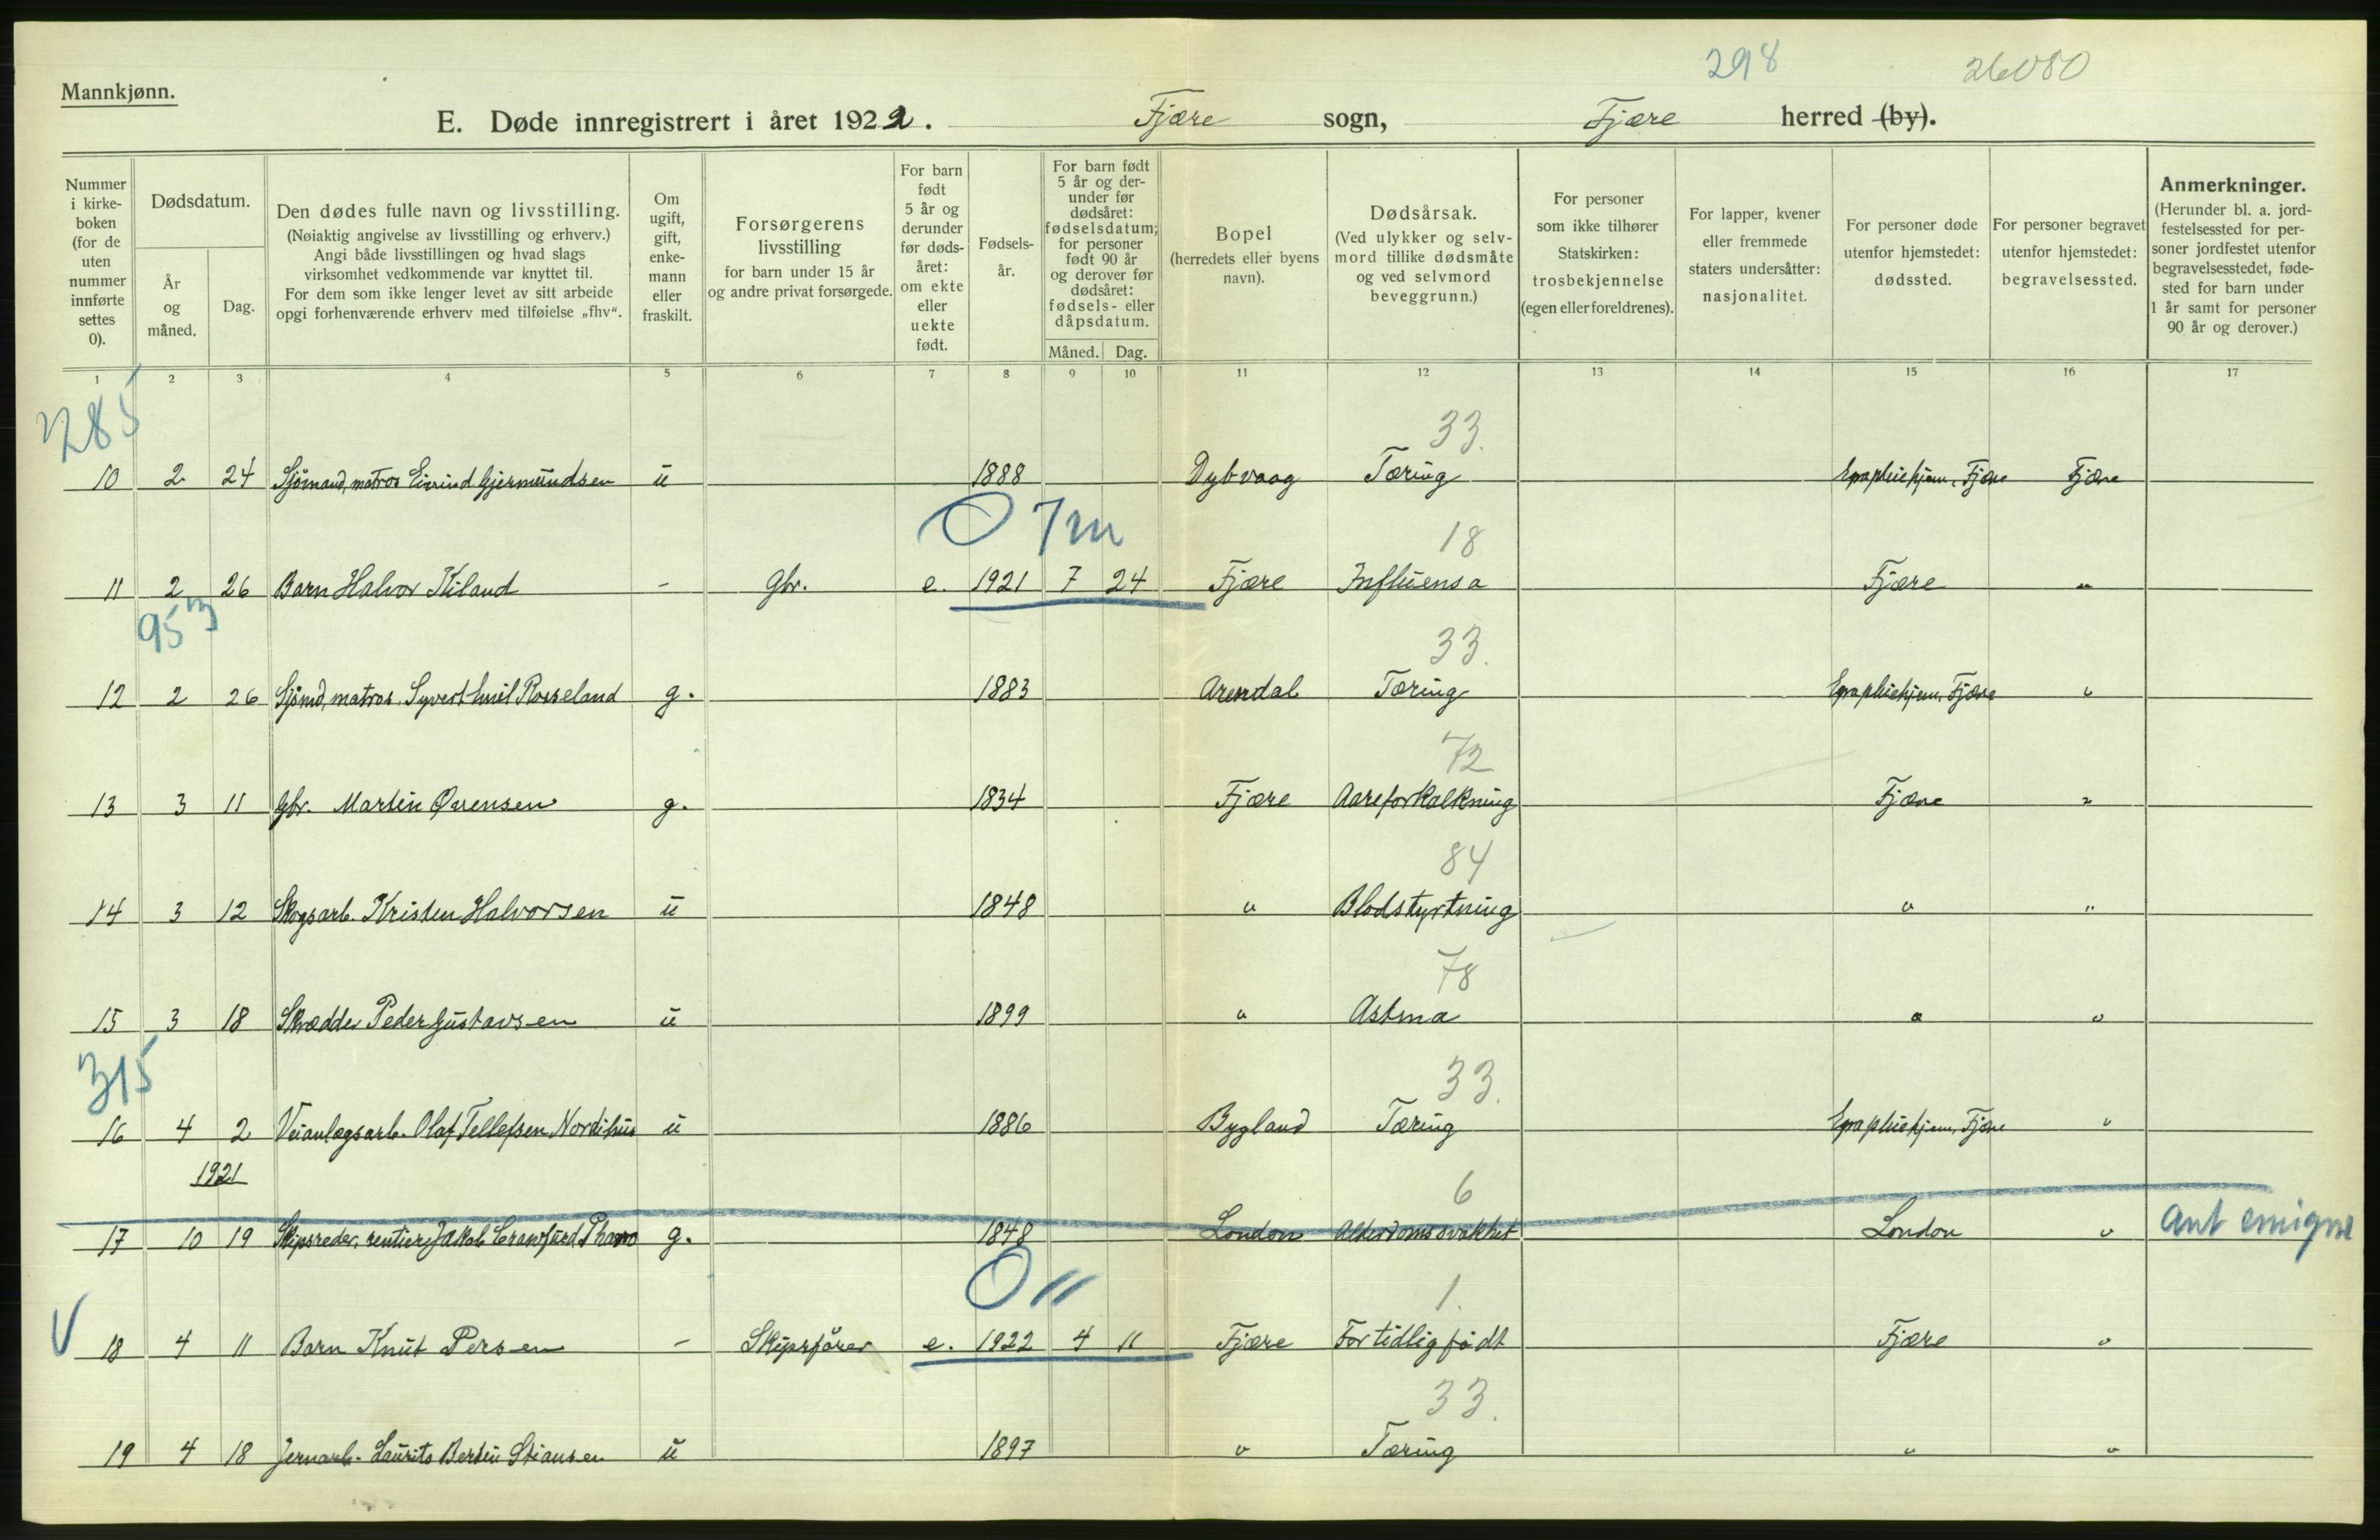 298 26080
Mannkjønn.
E. Døde innregistrert i året 1922. Fjære sogn, Fjære herred (by).
Nummer i kirke-boken (for de uten nummer innførte settes 0).
Dødsdatum.
År og måned.
Dag.
Den dødes fulle navn og livsstilling.
(Nøiaktig angivelse av livsstilling og erhverv.)
Angi både livsstillingen og hvad slags
virksomhet vedkommende var knyttet til.
For dem som ikke lenger levet av sitt arbeide
opgi forhenværende erhverv med tilføielse „fhv“.
Om ugift, gift, enke-mann eller fraskilt.
Forsørgerens livsstilling
for barn under 15 år
og andre privat forsørgede.
For barn født 5 år og derunder før døds-året: om ekte eller uekte født.
Fødsels-år.
For barn født 5 år og der-under før dødsåret: fødselsdatum; for personer født 90 år og derover før dødsåret: fødsels- eller dåpsdatum.
Måned. Dag.
Bopel (herredets eller byens navn).
Dødsårsak.
(Ved ulykker og selv-mord tillike dødsmåte og ved selvmord beveggrunn.)
For personer som ikke tilhører Statskirken: trosbekjennelse (egen eller foreldrenes).
For lapper, kvener eller fremmede staters undersåtter: nasjonalitet.
For personer døde utenfor hjemstedet: dødssted.
For personer begravet utenfor hjemstedet: begravelsessted.
Anmerkninger.
(Herunder bl. a. jord-festelsessted for per-soner jordfestet utenfor begravelsesstedet, føde-sted for barn under 1 år samt for personer 90 år og derover.)
1 2 3 4 5 6 7 8 9 10 11 12 13 14 15 16 17
285 33.
10 2 24 Sjömand, matros Eivind Gjermundsen u 1888 Dybvaag Tæring Fjære Fjære
O 7m 18
11 2 26 Barn Halvor Kiland - Gbr. e. 1921 7 24 Fjære Influensa Fjære "
953 33.
12 2 26 Sjömd, matros. Syvert Emil Rosseland g. 1883 Arendal Tæring Fjære "
72
13 3 11 Gbr. Martin Ørensen g. 1834 Fjære Aareforkalkning Fjære "
84
14 3 12 Skogsarb. Kristen Halvorsen u 1848 " Blodstyrtning " "
78
15 3 18 Skrædder Peder Gustavsen u 1899 " Astma " "
315 33.
16 4 2 Veianlægsarb. Olaf Tellefsen u 1886 Bygland Tæring Fjære "
1921 6
17 10 19 Skipsreder, rentier Jakob Crawfurd g. 1848 London Alderdomssvakhet London " Ant emigre
O 11 1.
V 18 4 11 Barn Knut Persen - Skipsfører e. 1922 4 11 Fjære For tidlig født Fjære "
33.
19 4 18 Jernarb. Laurits Bertin Stiansen u 1897 " Tæring " "